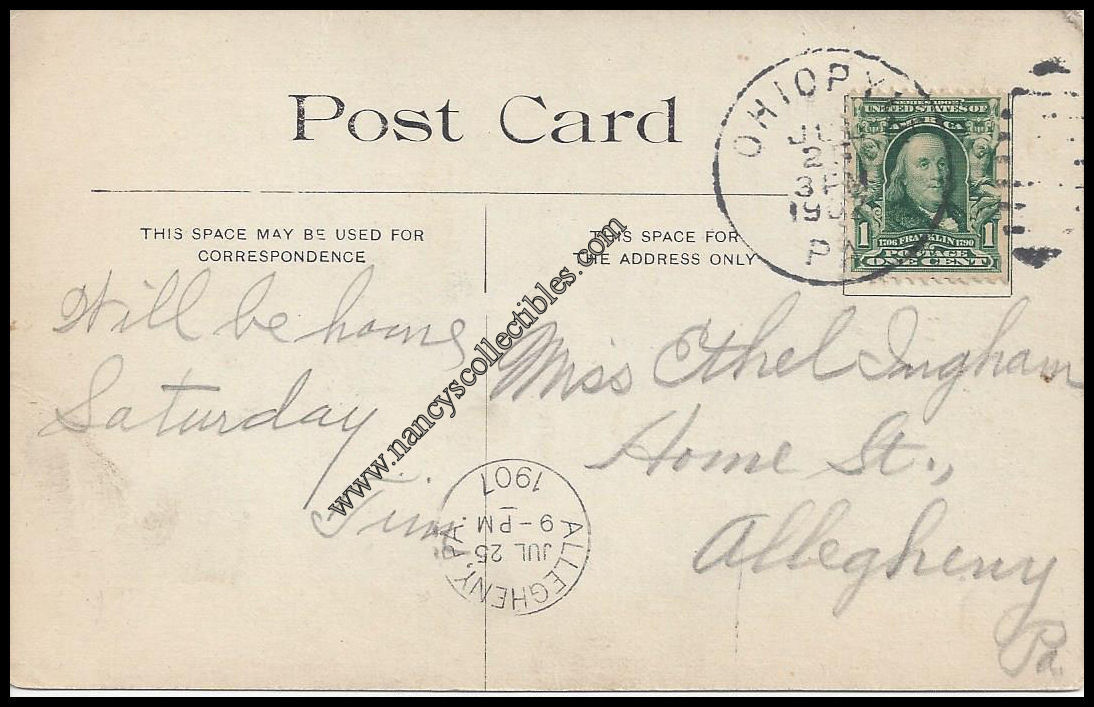 Post Card
THIS SPACE MAY BE USED FOR
CORRESPONDENCE
THIS SPACE FOR
THE ADDRESS ONLY
OHIOPY
JUL
3 PM
PA
SERIES 1902
UNITED STATES OF
AMERICA
1 1706 FRANKLIN 1790 1
POSTAGE
ONE CENT
Will be home
Saturday
Tim
Miss Ethel Ingham
Home St.,
Allegheny
Pa
ALLEGHENY, PA.
JUL 25
9-PM
1907
www.nancyscollectibles.com